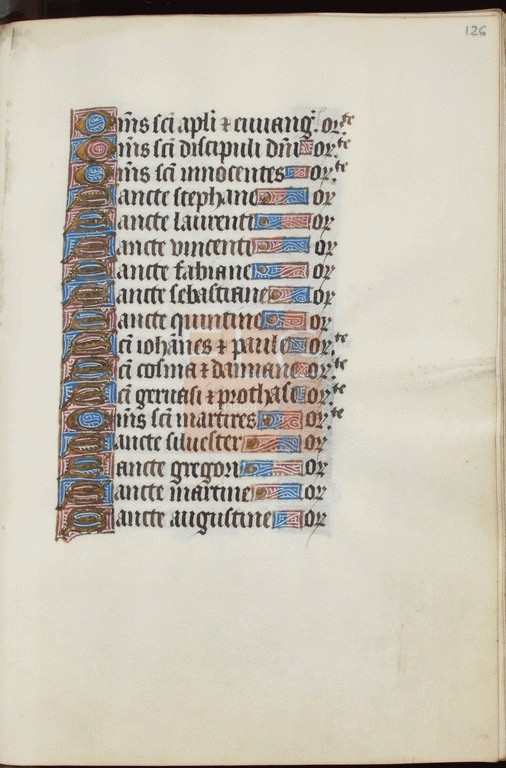 126
Om̄s sc̄i apl̄i ⁊ euuanḡ. or.te
Om̄s sc̄i discipuli dn̄i or.te
Om̄s sc̄i innocentes or.te
Sancte stephane or
Sancte laurenti or
Sancte vincenti or
Sancte fabiane or
Sancte sebastiane or
Sancte quintine or
Sc̄i iohān̄es ⁊ paule or.te
Sc̄i cosma ⁊ damiane or.te
Sc̄i geruasi ⁊ prothasi or.te
Om̄s sc̄i martires or.te
Sancte siluester or
Sancte gregori or
Sancte martine or
Sancte augustine or